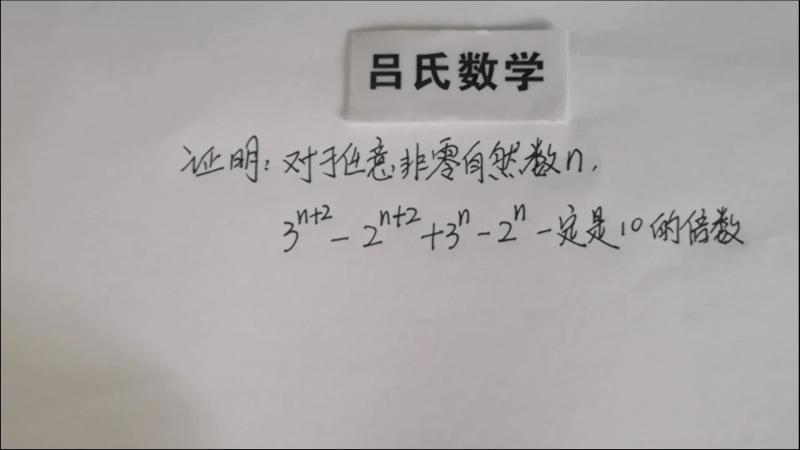 吕氏数学
证明：对于任意非零自然数n，
3^{n+2} - 2^{n+2} + 3^n - 2^n 一定是10的倍数